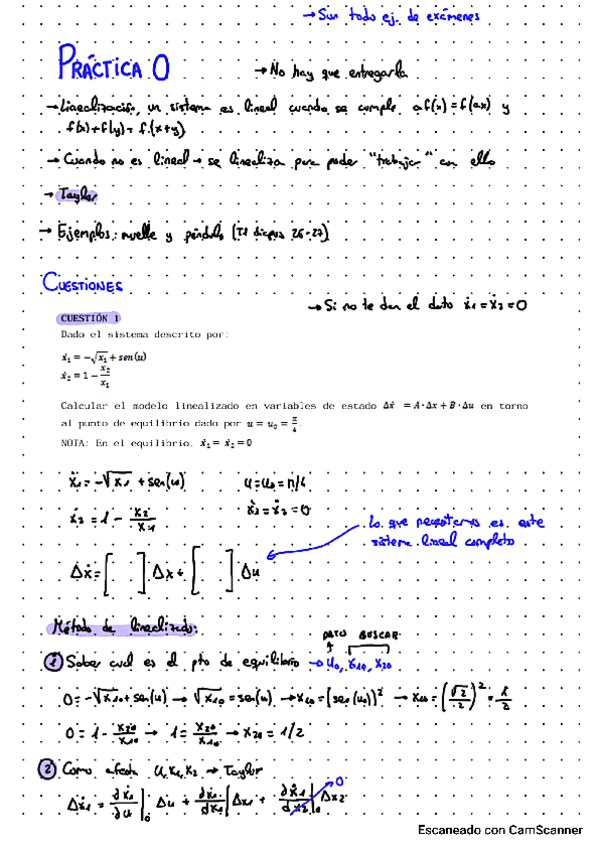 → Son todo ej. de exámenes
PRÁCTICA 0
→ No hay que entregarla
→ Linealización, un sistema es lineal cuando se cumple af(x) = f(ax) y
f(x)+f(y) = f(x+y)
→ Cuando no es lineal → se linealiza para poder "trabajar" con ello
→ Taylor
→ Ejemplos: muelle y péndulo (T1 diapos 26-27)
CUESTIONES
→ Si no te dan el dato ẋ1 = ẋ2 = 0
CUESTIÓN 1
Dado el sistema descrito por:
ẋ1 = -√x1 + sen(u)
ẋ2 = 1 - x2/x1
Calcular el modelo linealizado en variables de estado Δẋ = A·Δx + B·Δu en torno
al punto de equilibrio dado por u = u0 = π/4.
NOTA: En el equilibrio, ẋ1 = ẋ2 = 0
ẋ1 = -√x1 + sen(u) u = u0 = π/4
ẋ2 = 1 - x2/x1 ẋ1 = ẋ2 = 0
Lo que necesitamos es este
sistema lineal completo
Δẋ = [ ] Δx + [ ] Δu
Método de linealizado:
DATO BUSCAR
① Saber cual es el pto de equilibrio → u0, x10, x20
0 = -√x10 + sen(u) → √x10 = sen(u) → x10 = (sen(u0))² → x10 = (√2/2)² = 1/2
0 = 1 - x20/x10 → 1 = x20/x10 → x20 = 1/2
② Como afecta u, x1, x2 → Taylor
Δẋ1 = ∂ẋ1/∂u |0 Δu + ∂ẋ1/∂x1 | Δx1 + ∂ẋ1/∂x2 |0 Δx2 0
Escaneado con CamScanner